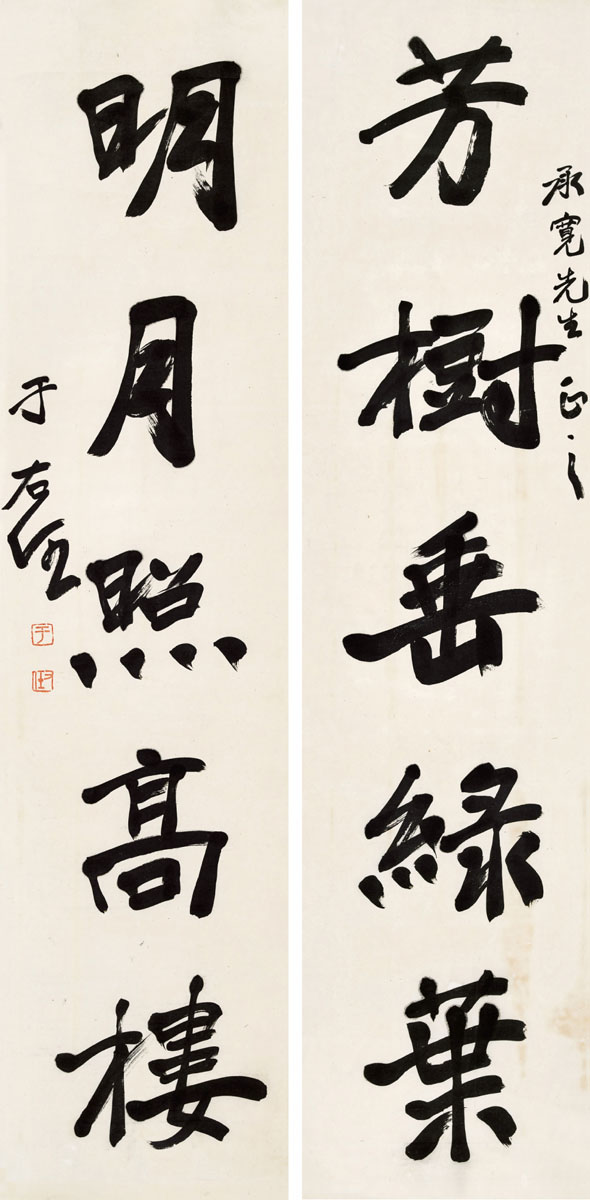 承寬先生正之
芳樹垂綠葉
明月照高樓
于右任